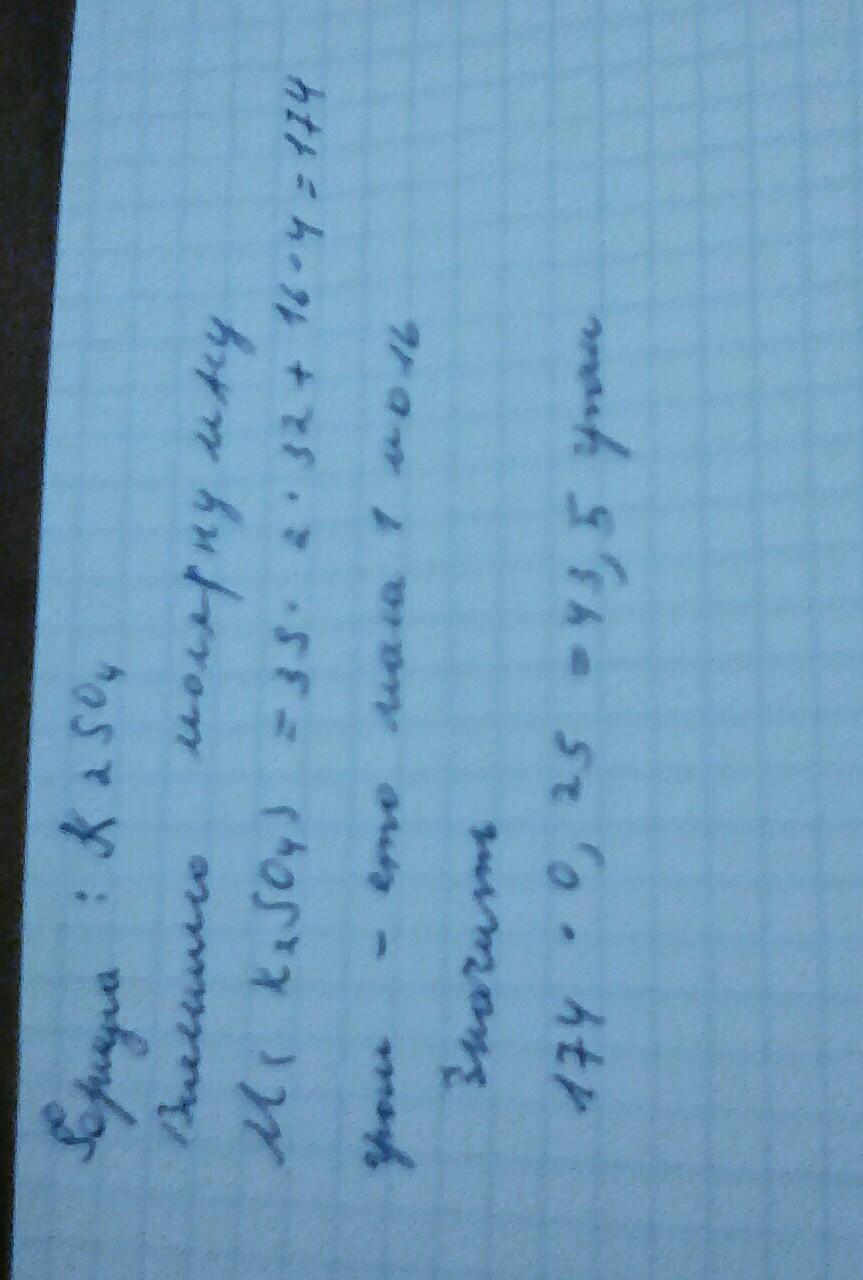 Формула : K2SO4
Вычислило молярну масу
M ( K2SO4 ) = 39 · 2 · 32 + 16 · 4 = 174
грам - ето маса 1 моль
Значить
174 · 0, 25 = 43, 5 грам